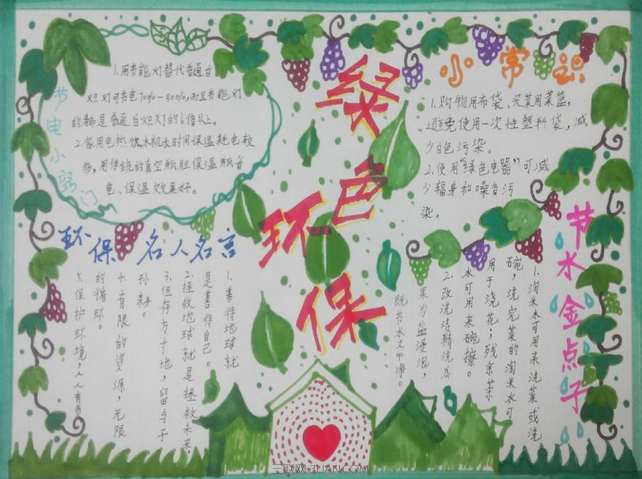 绿色环保
节电小窍门
1.用节能灯替代普通白
炽灯可节电70%-80%,而且节能灯
的寿命是普通白炽灯的6倍以上。
2.家用电热饮水机长时间保温耗电较
多,用传统的真空瓶胆保温瓶节
电、保温效果好。
小常识
1.购物用布袋、买菜用菜篮,
避免使用一次性塑料袋,减
少白色污染。
2.使用“绿色电器”可减
少辐身和噪音污
染。
环保名人名言
1.善待地球就
是善待自己。
2.拯救地球就是拯救未来
3.但存方寸地,留与子
孙耕。
4.有限的资源,无限
的循环。
5.保护环境,人人有责
节水金点子
1.淘米水可用来洗菜或洗
碗,洗完菜的淘米水可
用于浇花;残余茶
水可用来碗擦。
2.改洗洁精洗水
果为盐浸泡,
既节水又干净。